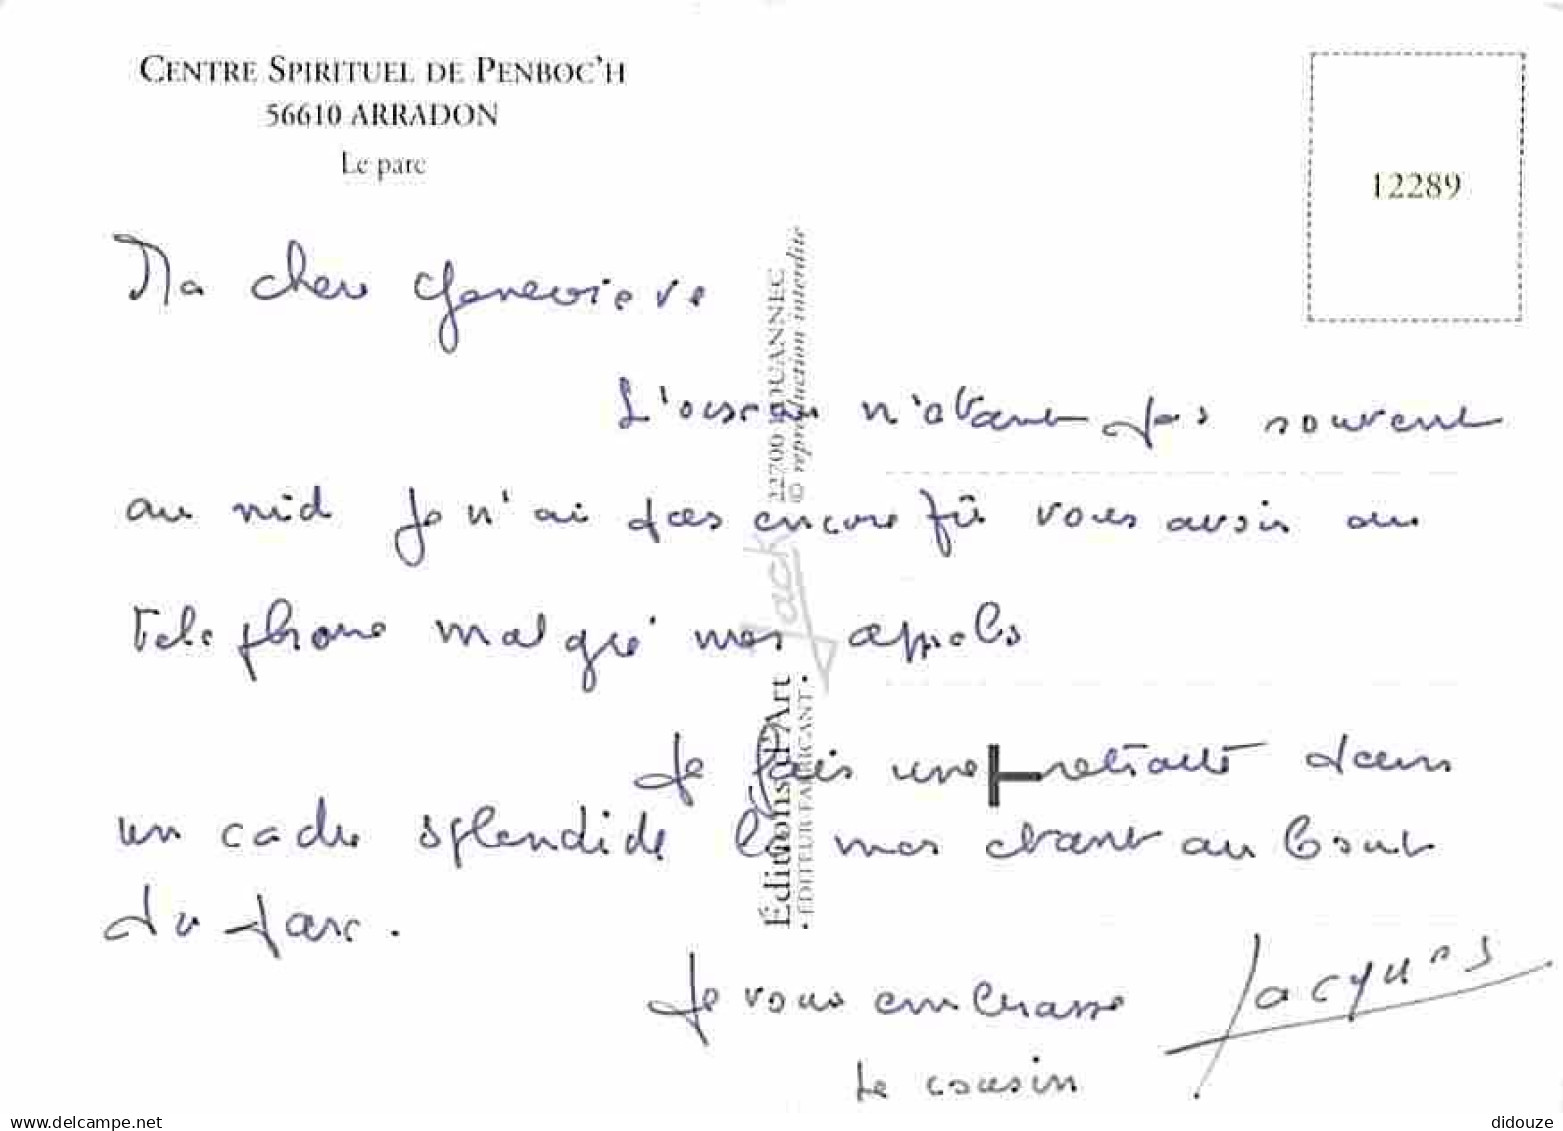 CENTRE SPIRITUEL DE PENBOC'H
56610 ARRADON
Le parc
12289
Ma cher Genevieve
L'oiseau n'etant pas souvent
au nid je n'ai pas encore pû vous avoir au
telephone malgré mes appels
Je fais une retraite dans
un cadre splendide la mer etant au bout
du parc.
Je vous embrasse Jacques
le cousin
Éditions d'Art Jack
• ÉDITEUR-FABRICANT •
22700 LOUANNEC
© reproduction interdite
www.delcampe.net
didouze